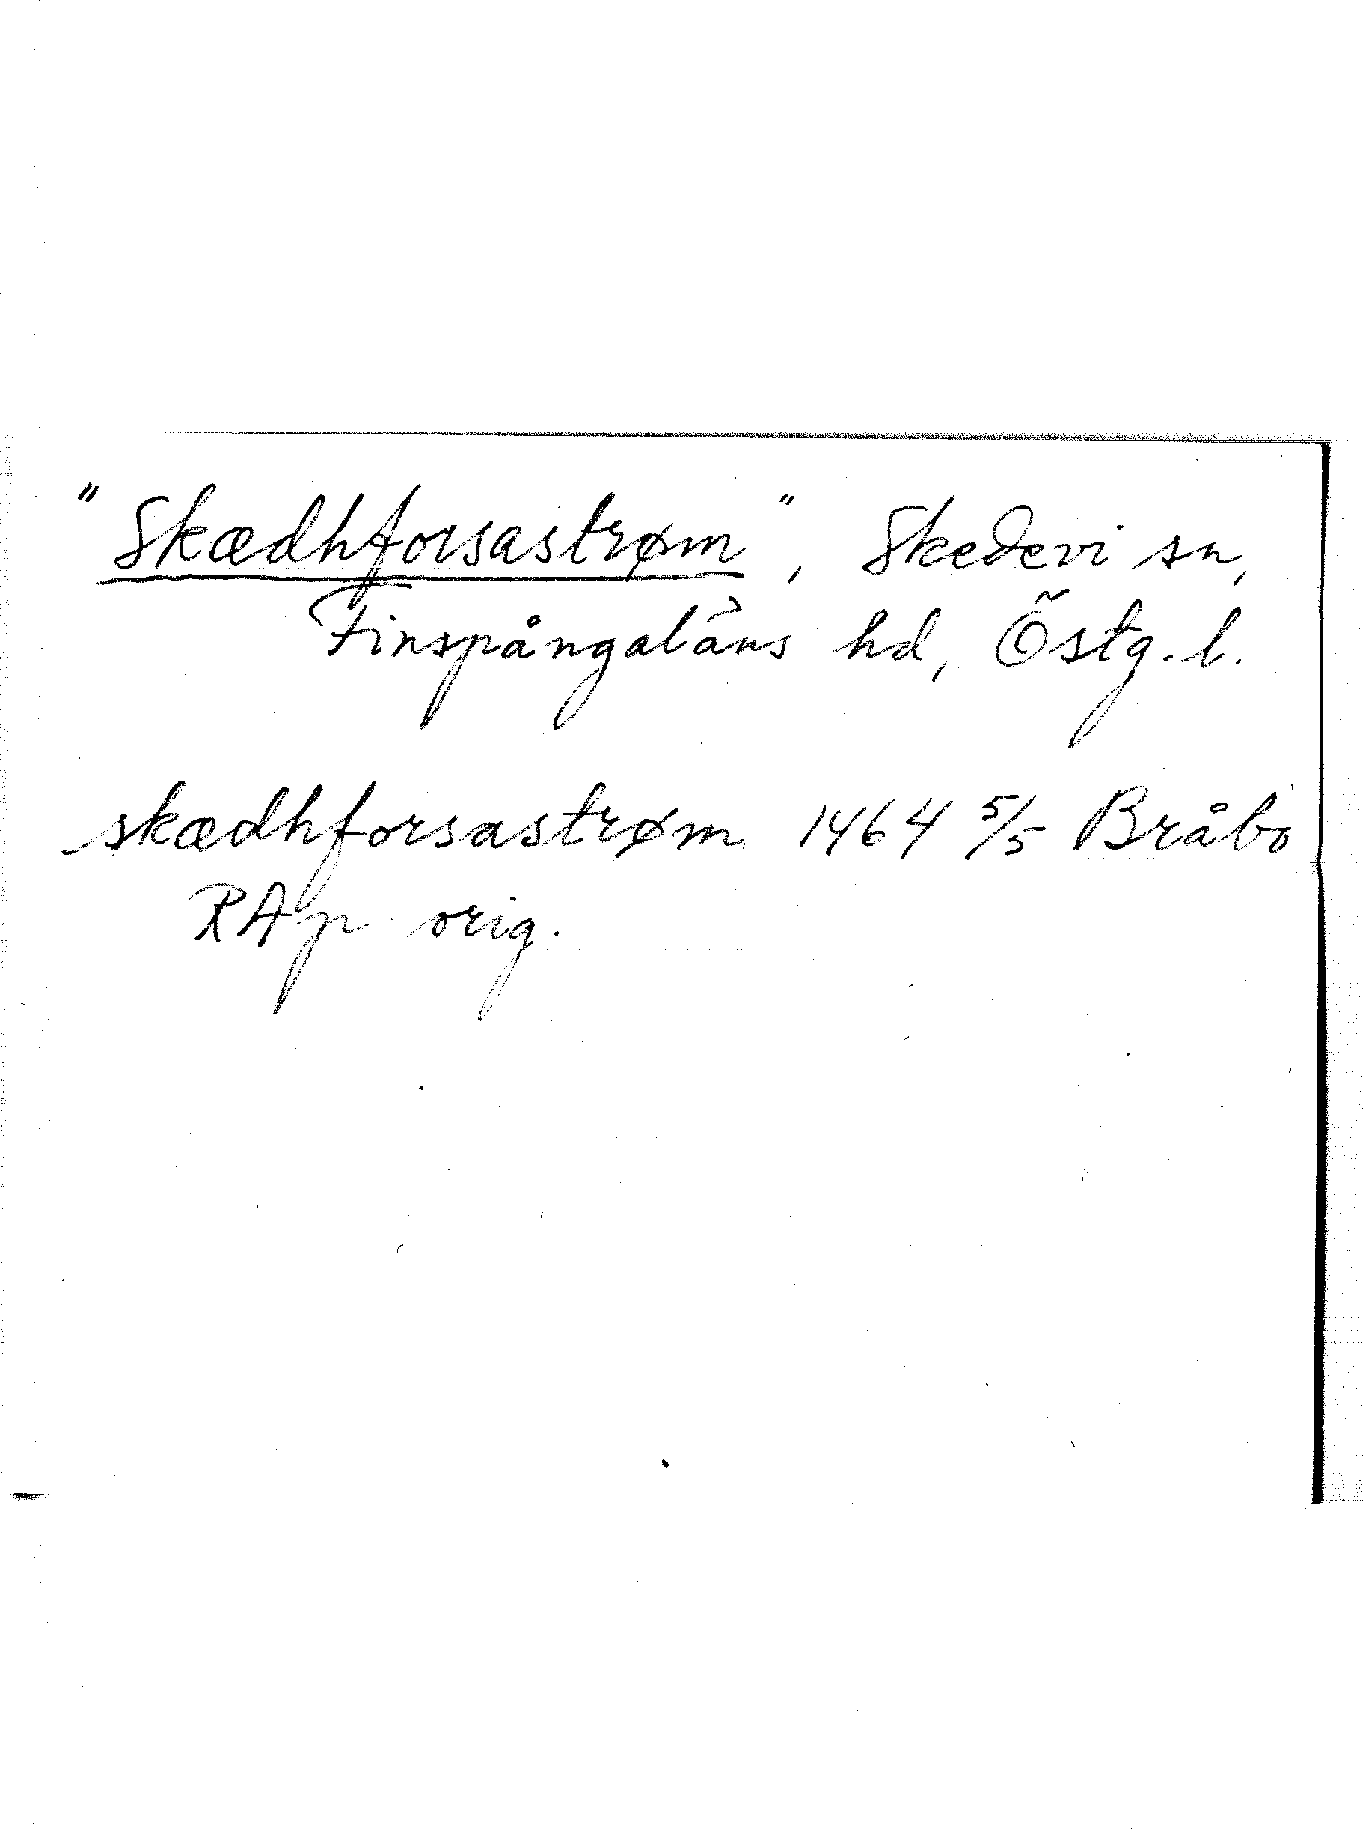 "Skædhforsastrøm", Skedevi sn,
Finspångaläns hd, Östg. l.
skædhforsastrøm 1464 5/5 Bråbo
RAp orig.